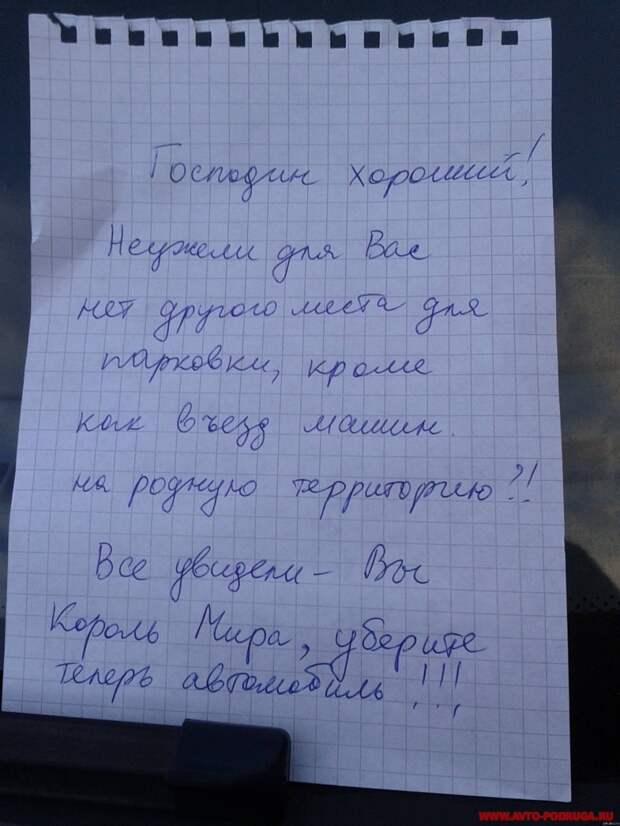 Господин хороший!
Неужели для Вас
нет другого места для
парковки, кроме
как въезд машин
на родную территорию?!
Все увидели - Вы
Король Мира, уберите
теперь автомобиль!!!
WWW.AVTO-PODRUGA.RU